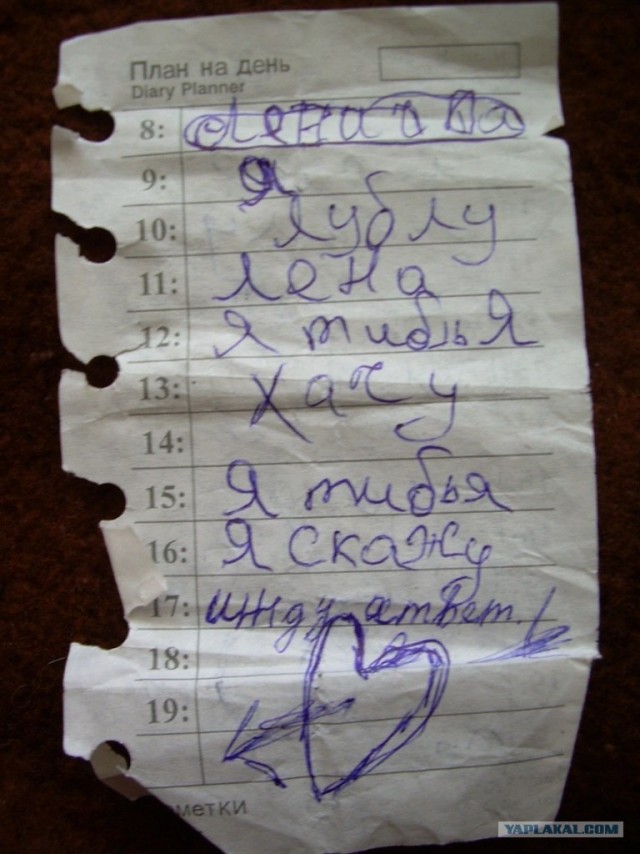 План на день
Diary Planner
8: Леначка
9: Я
10: лублу
11: Лена
12: Я тибьЯ
13: Хачу
14:
15: Я тибья
16: Я скажу
17: ижду атвет!
18:
19:
метки
YAPLAKAL.COM